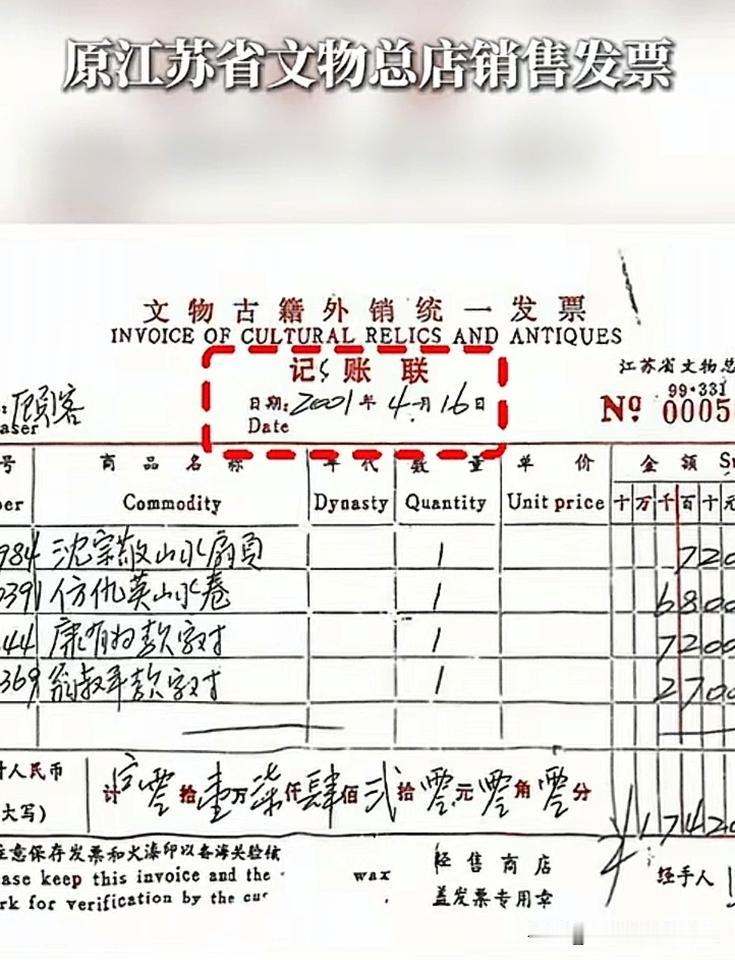 原江苏省文物总店销售发票
文物古籍外销统一发票
INVOICE OF CULTURAL RELICS AND ANTIQUES
记账联
江苏省文物总
99·331
日期:2001年4月16日
Date
:顾客
aser
№ 0005
号 商品名称 年代 数量 单价 金额 Su
ber Commodity Dynasty Quantity Unit price 十万千百十元
984 沈宗敬山水扇页 1 720
0391 仿仇英山水卷 1 6800
44 康有为款字对 1 7200
369 翁叔平款字对 1 2700
计人民币
大写)
计 零拾壹万柒仟肆佰贰拾零元零角零分
¥17420
注意保存发票和火漆印以备海关验核
ease keep this invoice and the wax
rk for verification by the cus
经售商店
盖发票专用章
经手人